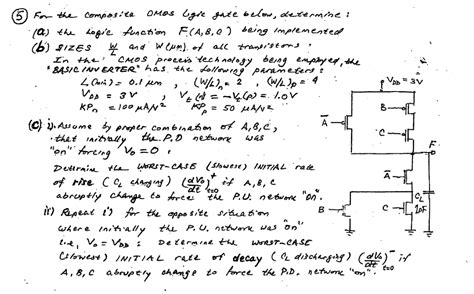 ⑤ For the composite CMOS logic gate below, determine:
(a) the logic function F(A,B,C) being implemented
(b) SIZES W/L and W(μm) of all transistors.
In the CMOS process technology being employed, the
"BASIC INVERTER" has the following parameters:
L(min) = 0.1 μm , (W/L)n = 2 , (W/L)p = 4
VDD = 3V , Vt(n) = -Vt(p) = 1.0V
KPn = 100 μA/V² KPp = 50 μA/V²
(c) i). Assume by proper combination of A, B, C,
that initially the P.D network was
"on" forcing Vo = 0.
Determine the WORST-CASE (slowest) INITIAL rate
of rise (CL charging) (dVo/dt)⁺ t=0 if A, B, C
abruptly change to force the P.U. network "on".
ii) Repeat i) for the opposite situation
where initially the P.U. network was "on"
i.e., Vo = VDD : Determine the WORST-CASE
(slowest) INITIAL rate of decay (CL discharging) (dVo/dt)⁻ t=0 if
A, B, C abruptly change to force the P.D. network "on".
VDD = 3V
B
A̅
C
F
A̅
B
C
CL
1pF